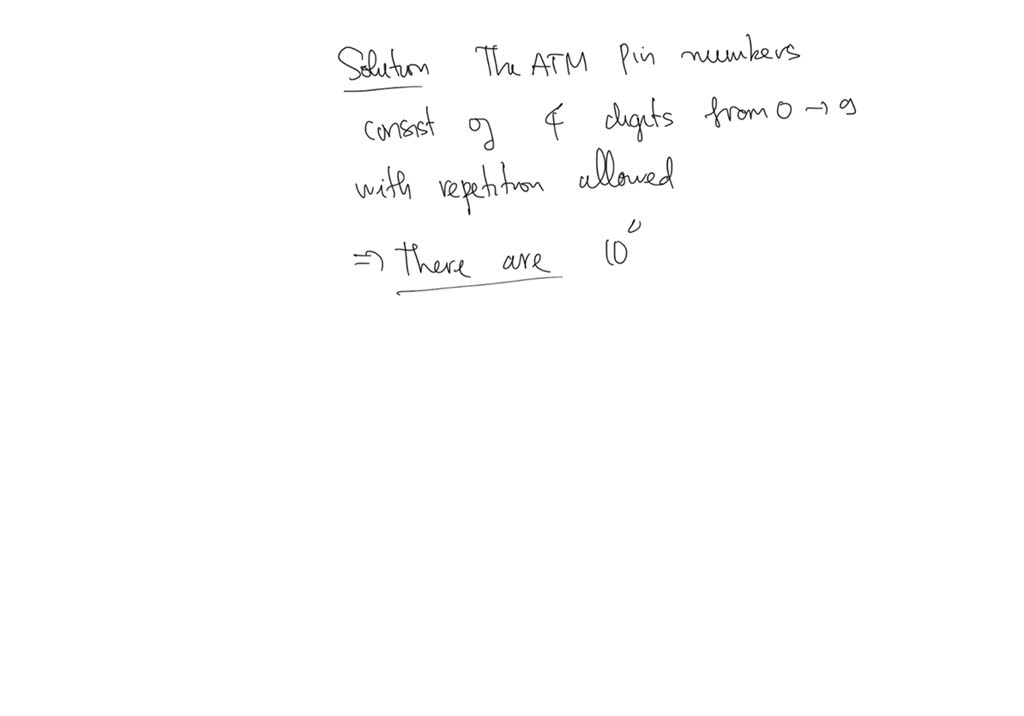 Solution The ATM Pin numbers
consist of 4 digits from 0 → 9
with repetition allowed
⇒ there are 10